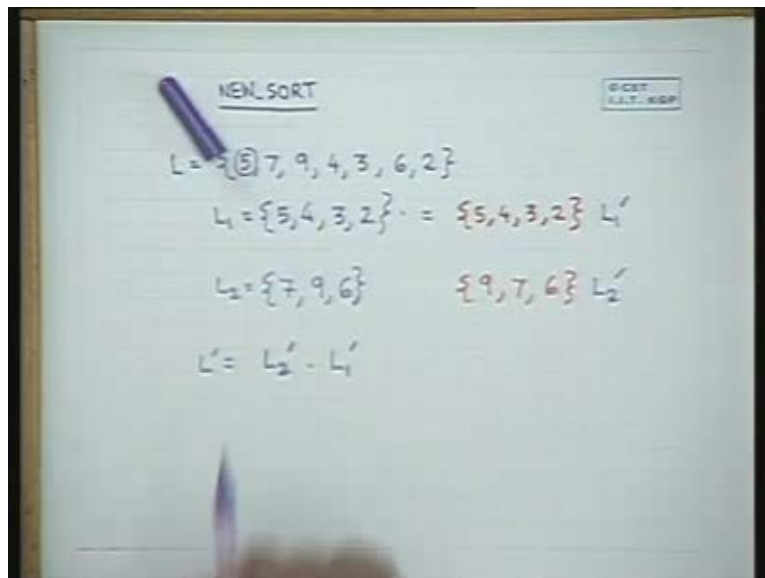 NEW_SORT
© CET
I.I.T. KGP
L = {5, 7, 9, 4, 3, 6, 2}
L₁ = {5,4,3,2} · = {5,4,3,2} L₁′
L₂ = {7, 9, 6} {9, 7, 6} L₂′
L′ = L₂′ · L₁′